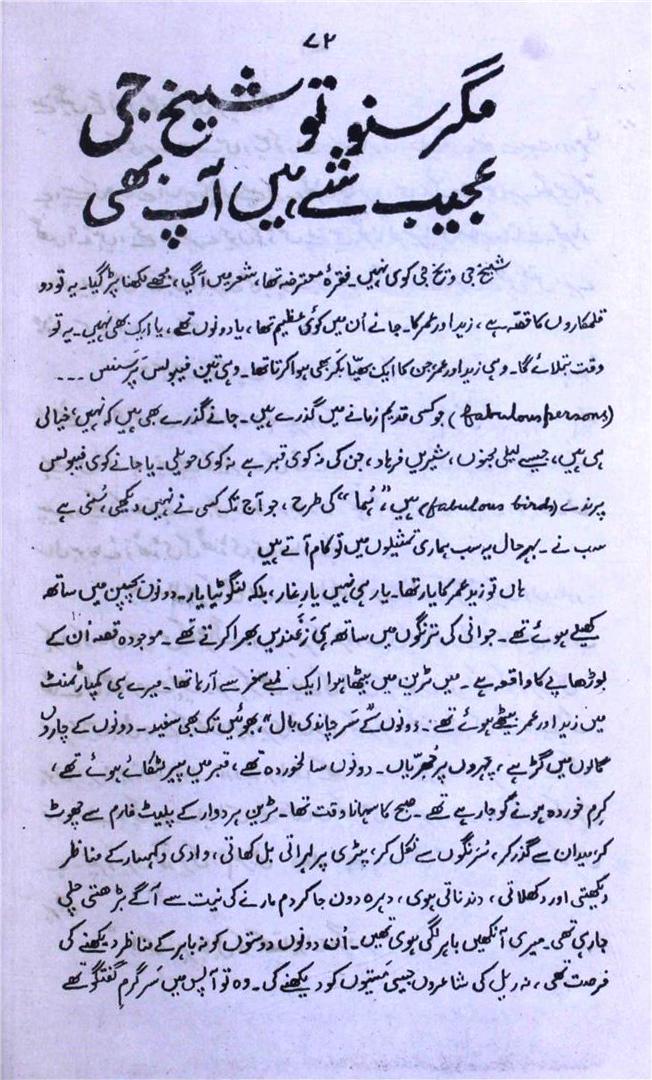 ۷۲
مگر سنو تو شیخ جی
عجیب شے ہیں آپ بھی
شیخ جی وخ جی کوی نہیں۔ فقرۂ معترضہ تھا، شعر میں آگیا، مجھے لکھنا پڑ گیا۔ یہ تو دو
قلمکاروں کا قصّہ ہے، زید اور عمر کا۔ جانے اُن میں کوئی عظیم تھا، یا دونوں تھے، یا ایک بھی نہیں۔ یہ تو
وقت بتلائے گا۔ وہی زید اور عمر جن کا ایک بھیّا بکر بھی ہوا کرتا تھا۔ وہی تین فیبولس پَرسنس ...
(fabulous persons) جو کسی قدیم زمانے میں گذرے ہیں۔ جانے گذرے بھی ہیں کہ نہیں، خیالی
ہی ہیں، جیسے لیلیٰ مجنوں، شیریں فرہاد، جن کی نہ کوی قبر ہے نہ کوی حویلی۔ یا جانے کوی فیبولس
پرندے (fabulous birds) ہیں، "ہُما" کی طرح، جو آج تک کسی نے نہیں دیکھی، سُنی ہے
سب نے۔ بہر حال یہ سب ہماری تمثیلوں میں تو کام آتے ہیں
ہاں تو زید عمر کا یار تھا۔ یار ہی نہیں یارِ غار، بلکہ لنگوٹیا یار۔ دونوں بچپن میں ساتھ
کھیلے ہوئے تھے۔ جوانی کی ترنگوں میں ساتھ ہی زقندیں بھرا کرتے تھے۔ موجودہ قصہ اُن کے
بوڑھاپے کا واقعہ ہے۔ میں ٹرین میں بیٹھا ہوا ایک لمبے سفر سے آرہا تھا۔ میرے ہی کمپارٹمنٹ
میں زید اور عمر بیٹھے ہوئے تھے۔ دونوں کے سَر چاندی بال، بھوئیں تک بھی سفید۔ دونوں کے چاروں
گالوں میں گڑہے، چہروں پر جُھرّیاں۔ دونوں سالخوردہ تھے، قبر میں پیر لٹکائے ہوئے تھے،
کِرم خوردہ ہونے کو جا رہے تھے۔ صبح کا سہانا وقت تھا۔ ٹرین ہردوار کے پلیٹ فارم سے چھوٹ
کر، میدان سے گذر کر، سُرنگوں سے نکل کر، پٹری پر لہراتی بل کھاتی، وادی و کہسار کے مناظر
دیکھتی اور دکھلاتی، دندناتی ہوی، دہرہ دون جا کر دم مارنے کی نیت سے آگے بڑھتی چلی
جارہی تھی۔ میری آنکھیں باہر لگی ہوی تھیں۔ اُن دونوں دوستوں کو نہ باہر کے مناظر دیکھنے کی
فرصت تھی، نہ ریل کی شاعروں جیسی مستیوں کو دیکھنے کی۔ وہ تو آپس میں سَر گرمِ گفتگو تھے